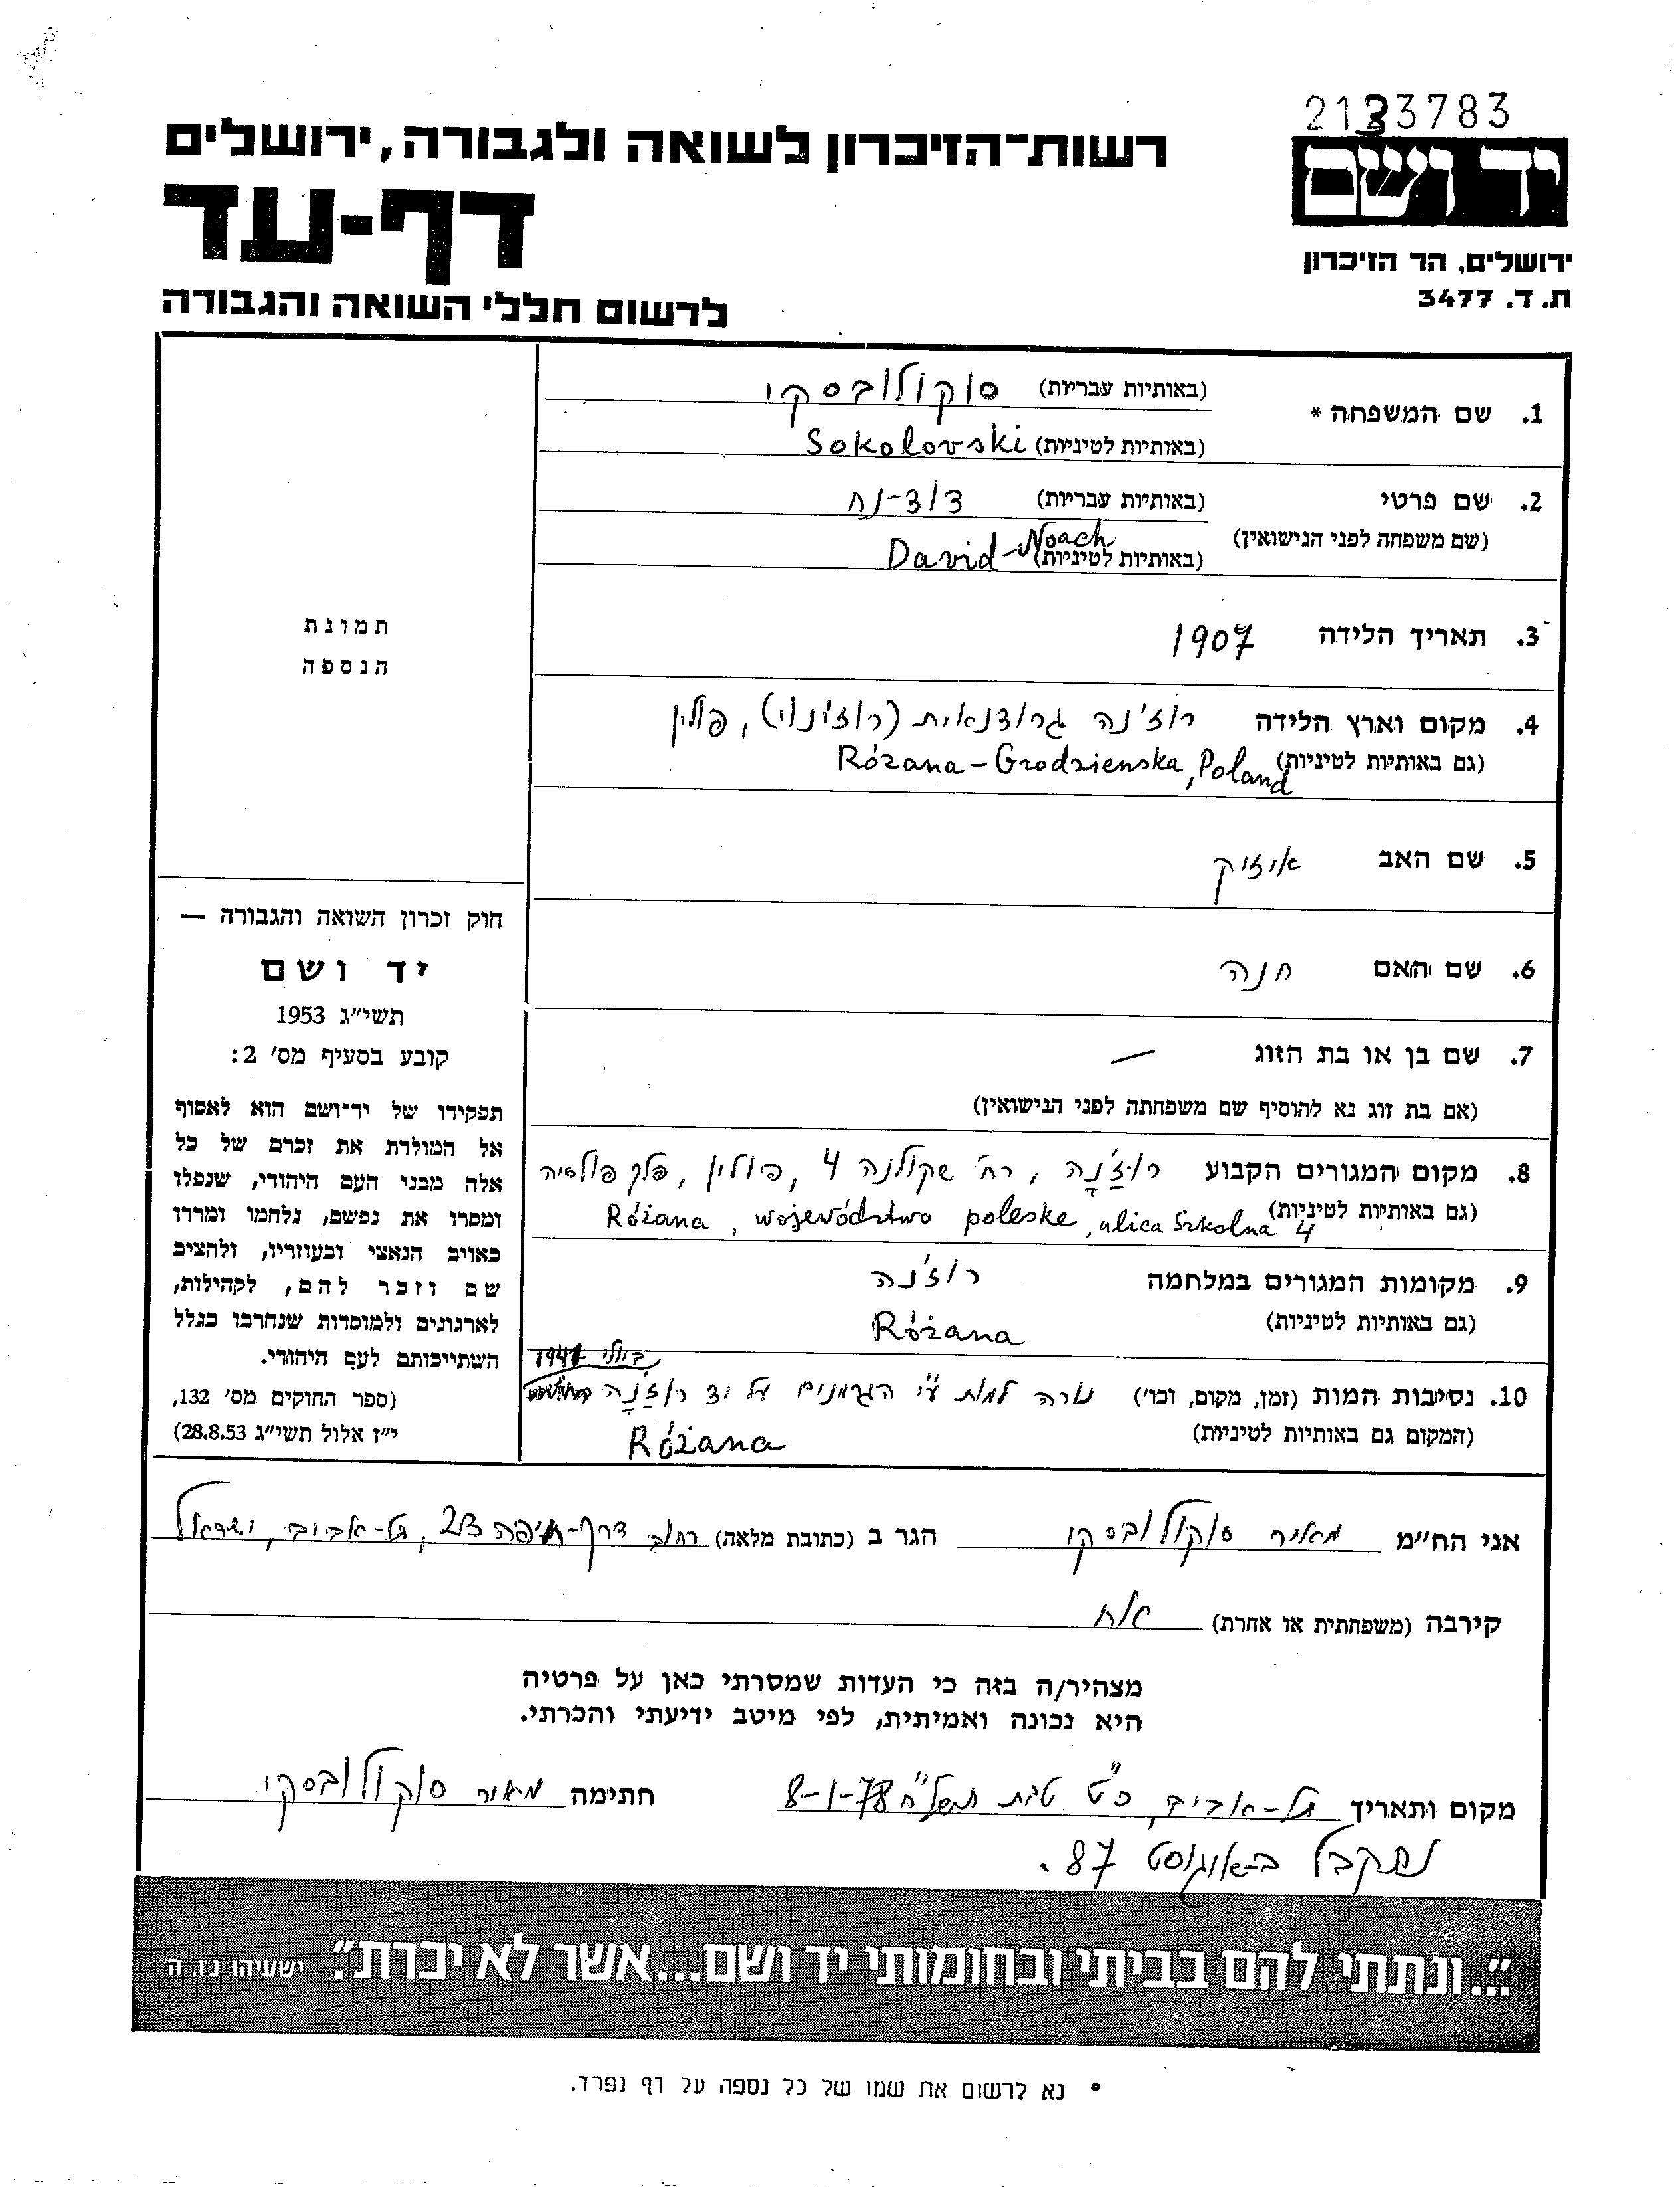 2133783
יד ושם
ירושלים, הר הזיכרון
ת.ד. 3477
רשות־הזיכרון לשואה ולגבורה, ירושלים
דף-עד
לרשום חללי השואה והגבורה
1. שם המשפחה * (באותיות עבריות) סוקולובסקי
(באותיות לטיניות) Sokolovski
2. שם פרטי (באותיות עבריות) דוד-נח
(שם משפחה לפני הנישואין) (באותיות לטיניות) David-Noach
3. תאריך הלידה 1907
4. מקום וארץ הלידה רוז'נה גרודנאית (רוז'ינוי), פולין
(גם באותיות לטיניות) Różana-Grodzienska, Poland
5. שם האב איזיק
6. שם האם חנה
7. שם בן או בת הזוג —
(אם בת זוג נא להוסיף שם משפחתה לפני הנישואין)
8. מקום המגורים הקבוע רוז'נה, רח' שקולנה 4, פולין, פלך פולסיה
(גם באותיות לטיניות) Różana, województwo poleske, ulica Szkolna 4
9. מקומות המגורים במלחמה רוז'נה
(גם באותיות לטיניות) Różana
10. נסיבות המות (זמן, מקום, וכו') נורה למות ע"י הגרמנים על יד רוז'נה ביולי 1941
(המקום גם באותיות לטיניות) Różana
תמונת
הנספה
חוק זכרון השואה והגבורה —
יד ושם
תשי"ג 1953
קובע בסעיף מס' 2:
תפקידו של יד־ושם הוא לאסוף
אל המולדת את זכרם של כל
אלה מבני העם היהודי, שנפלו
ומסרו את נפשם, נלחמו ומרדו
באויב הנאצי ובעוזריו, ולהציב
שם וזכר להם, לקהילות,
לארגונים ולמוסדות שנחרבו בגלל
השתייכותם לעם היהודי.
(ספר החוקים מס' 132,
י"ז אלול תשי"ג 28.8.53)
אני הח"מ מאיר סוקולובסקי הגר ב (כתובת מלאה) רחוב דרך-חיפה 23, תל-אביב, ישראל
קירבה (משפחתית או אחרת) אח
מצהיר/ה בזה כי העדות שמסרתי כאן על פרטיה
היא נכונה ואמיתית, לפי מיטב ידיעתי והכרתי.
מקום ותאריך תל-אביב, כ"ט טבת תשל"ח 8-1-78 חתימה מאיר סוקולובסקי
נתקבל באוגוסט 87.
"...ונתתי להם בביתי ובחומותי יד ושם...אשר לא יכרת". ישעיהו נ"ו, ה'
* נא לרשום את שמו של כל נספה על דף נפרד.